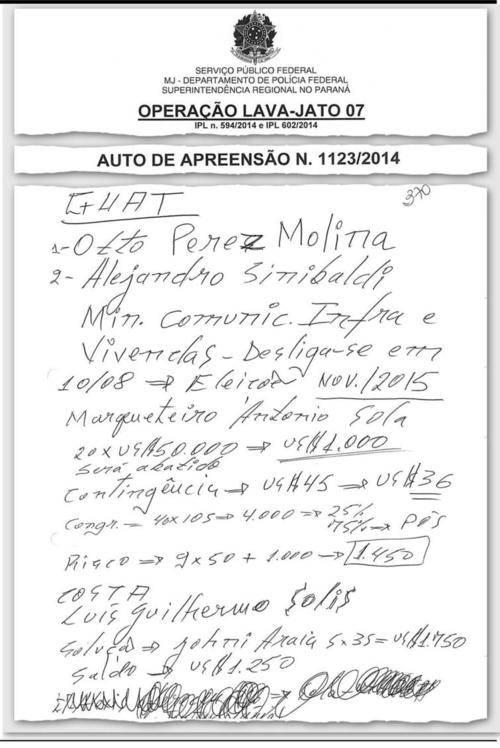 SERVIÇO PÚBLICO FEDERAL
MJ - DEPARTAMENTO DE POLÍCIA FEDERAL
SUPERINTENDÊNCIA REGIONAL NO PARANÁ
OPERAÇÃO LAVA-JATO 07
IPL n. 594/2014 e IPL 602/2014
AUTO DE APREENSÃO N. 1123/2014
370
GUAT
1- Otto Perez Molina
2- Alejandro Sinibaldi
Min. Comunic. Infra e
Vivendas - Desliga-se em
10/08 ⇒ Eleição NOV./2015
Marqueteiro Antonio Sola
20 x US$50.000 ⇒ US$1.000
Será abatido
Contingência → US$45 → US$36
Congr. = 40x105 ⇒ 4.000 ⇒ 25%
75% → Pós
Risco ⇒ 9x50 + 1.000 → 1.450
COSTA
Luís Guilhermo Solis
Solução ⇒ Johni Araia 5x35 = US$1.750
Saldo → US$1.250